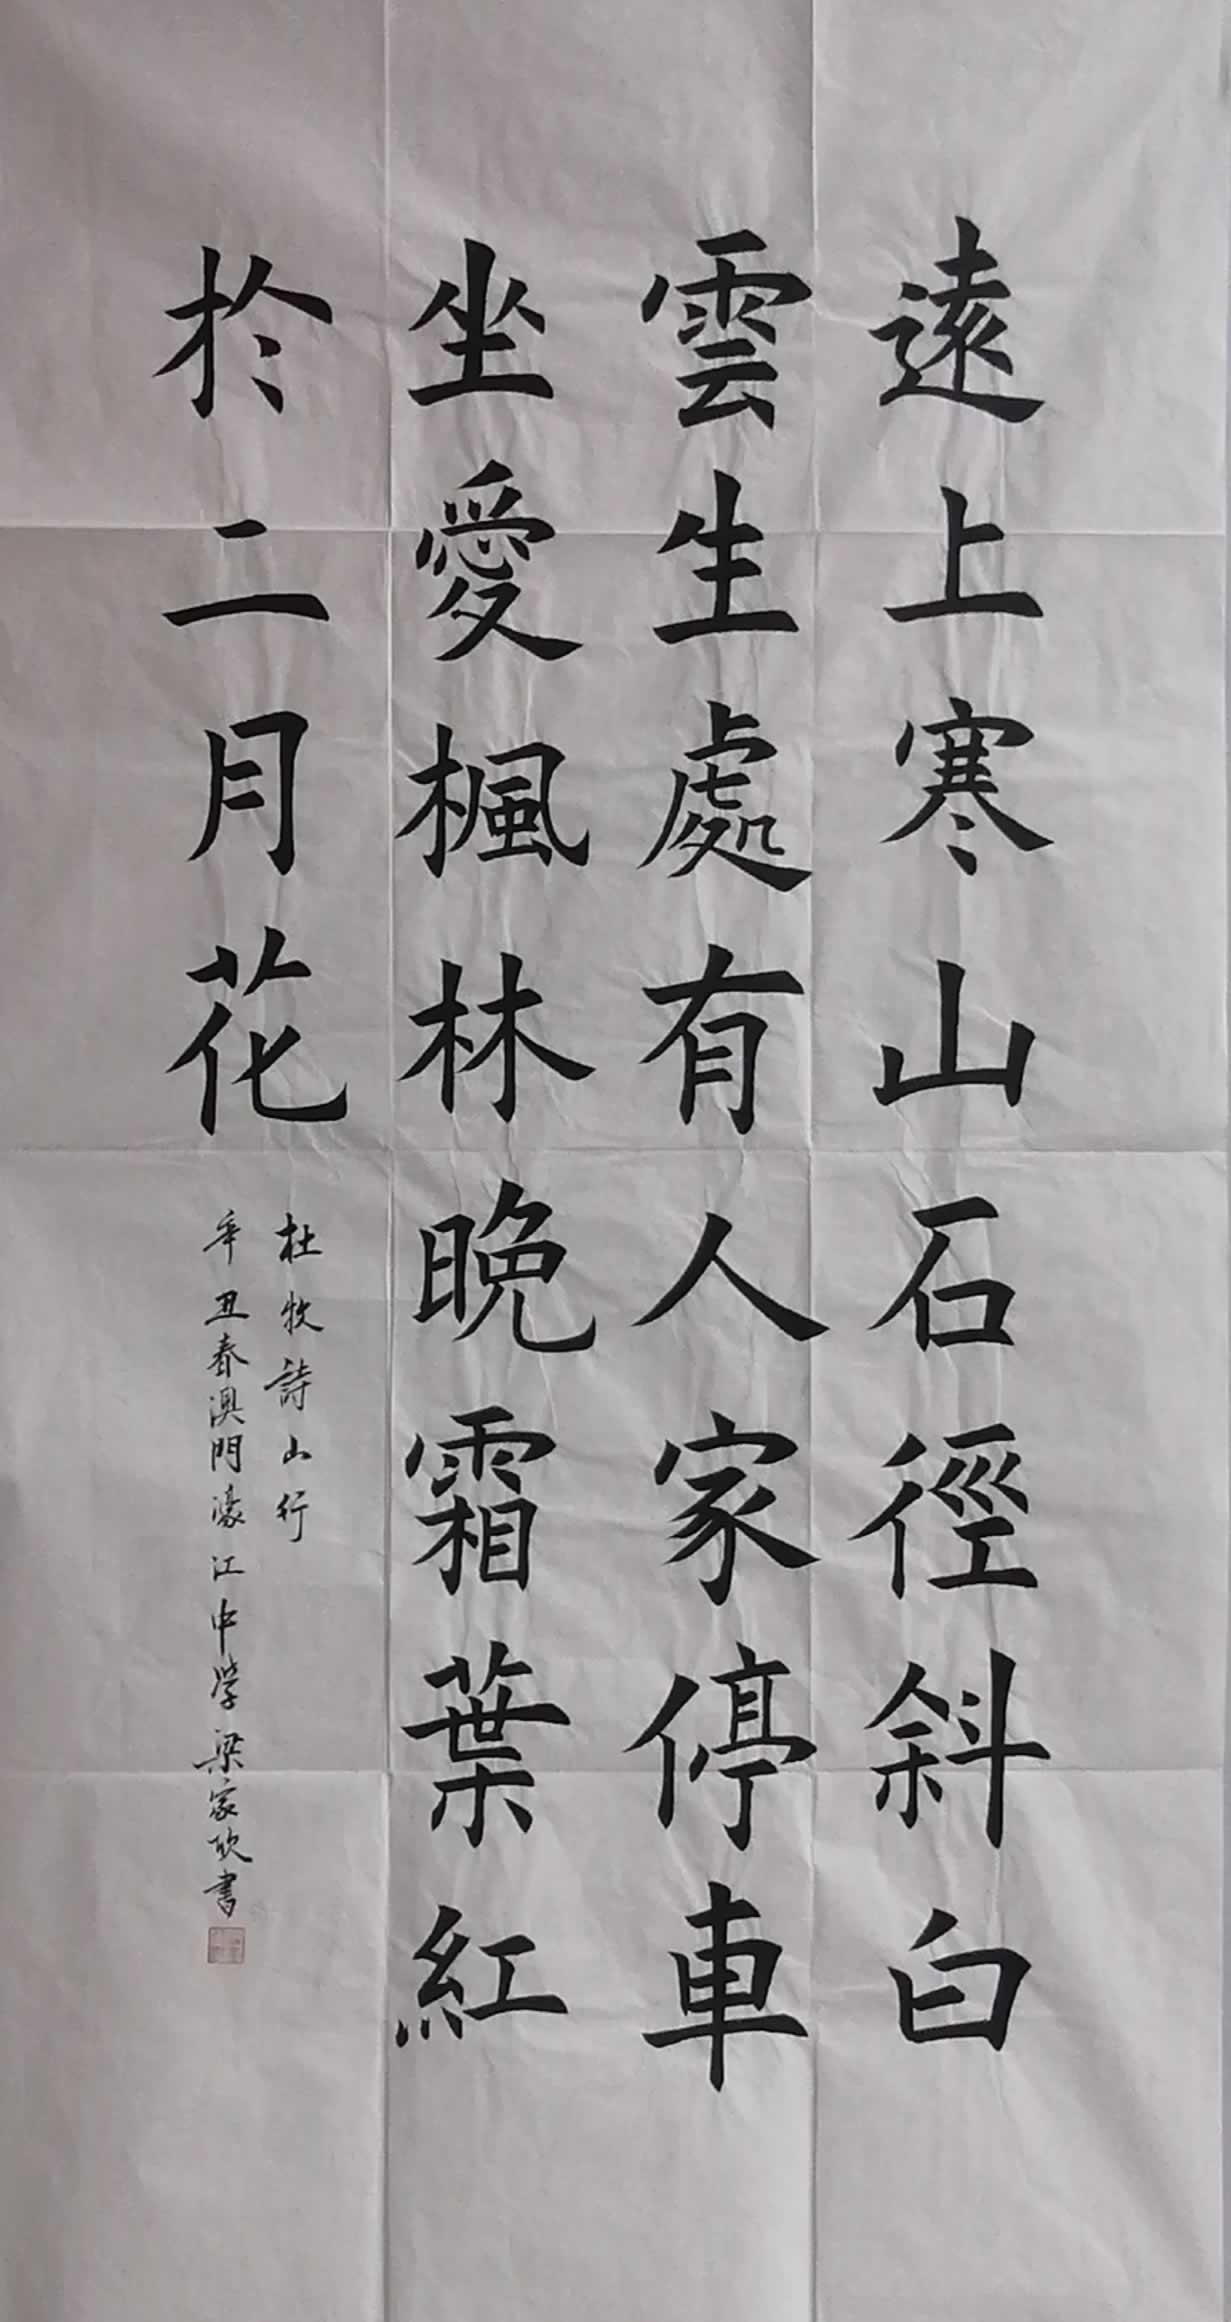 遠上寒山石徑斜白
雲生處有人家停車
坐愛楓林晚霜葉紅
於二月花
杜牧詩山行
辛丑春澳門濠江中学梁家欣書